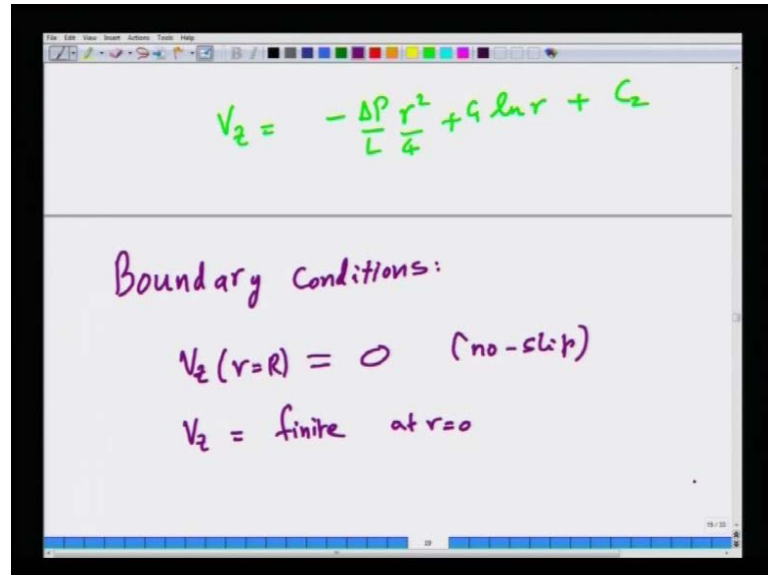 File Edit View Insert Actions Tools Help
V_z = - ΔP/L r²/4 + C₁ ln r + C₂
Boundary Conditions:
V_z (r=R) = 0 (no-slip)
V_z = finite at r=0
19